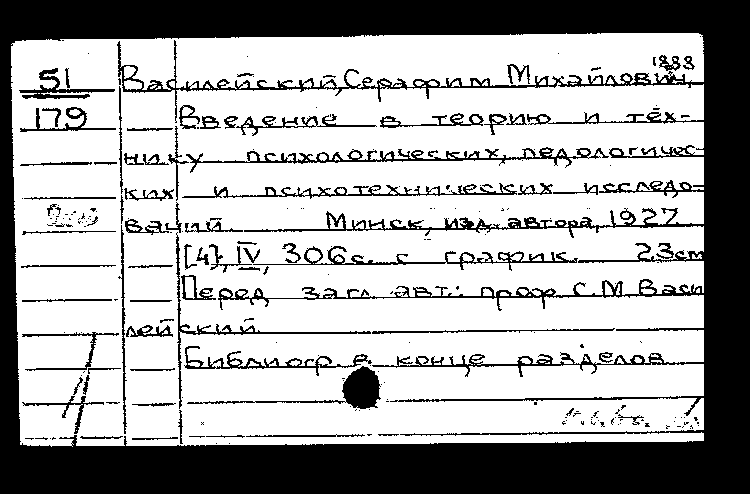 1888
51 Василейский, Серафим Михайлович,
179 Введение в теорию и тех-
нику психологических, педологичес-
ких и психотехнических исследо-
ваний. Минск, изд. автора, 1927.
[4], IV, 306 с. с график. 23см
Перед загл. авт.: проф. С.М. Васи
лейский.
Библиогр. в конце разделов